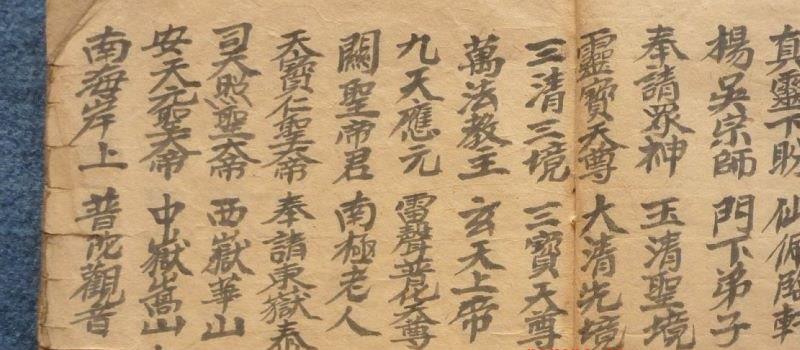 真靈下盼 仙佩臨軒
楊吳宗師 門下弟子
奉請眾神 玉清聖境
靈寶天尊 大清先境
三清三境 三寶天尊
萬法教主 玄天上帝
九天應元 雷聲普化天尊
關聖帝君 南極老人
天寶仁聖大帝 奉請東嶽泰
司天照聖大帝 西嶽華山
安天元聖大帝 中嶽嵩山
南海岸上 普陀觀音